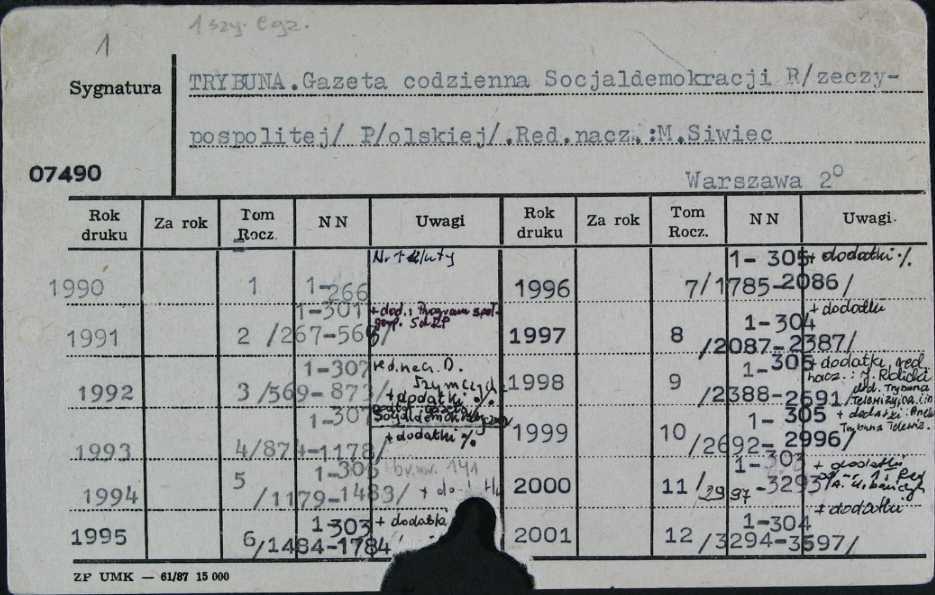 1 szy. egz.
1
Sygnatura
TRYBUNA.Gazeta codzienna Socjaldemokracji R/zeczy-
pospolitej/ P/olskiej/.Red.nacz.:M.Siwiec
07490
Warszawa 2⁰
Rok druku Za rok Tom Rocz. NN Uwagi Rok druku Za rok Tom Rocz. NN Uwagi
1990 1 1-266 Nr 1 z luty
1996 7/1785-2086/ 1-305 + dodatki %
1991 2 /267-568/ 1-301 + dod.: Program
1997 8 /2087-2387/ 1-304 + dodatki
1992 3/569-873/ 1-307 red. nacz. D. Szymczycha + dodatki %
1998 9 /2388-2691/ 1-305 + dodatki, red nacz.: J. dod. Trybuna
1993 4/874-1178/ 1-307 + dodatki %
1999 10 /2692-2996/ 1-305 + dodatki: Trybuna
1994 5 /1179-1483/ 1-306 br. nr. 141
2000 11 /2997-3293/ 1-303 + dodatki
1995 6/1484-1784 1-303 + dodatki
2001 12 /3294-3597/ 1-304 + dodatki
ZP UMK — 61/87 15 000